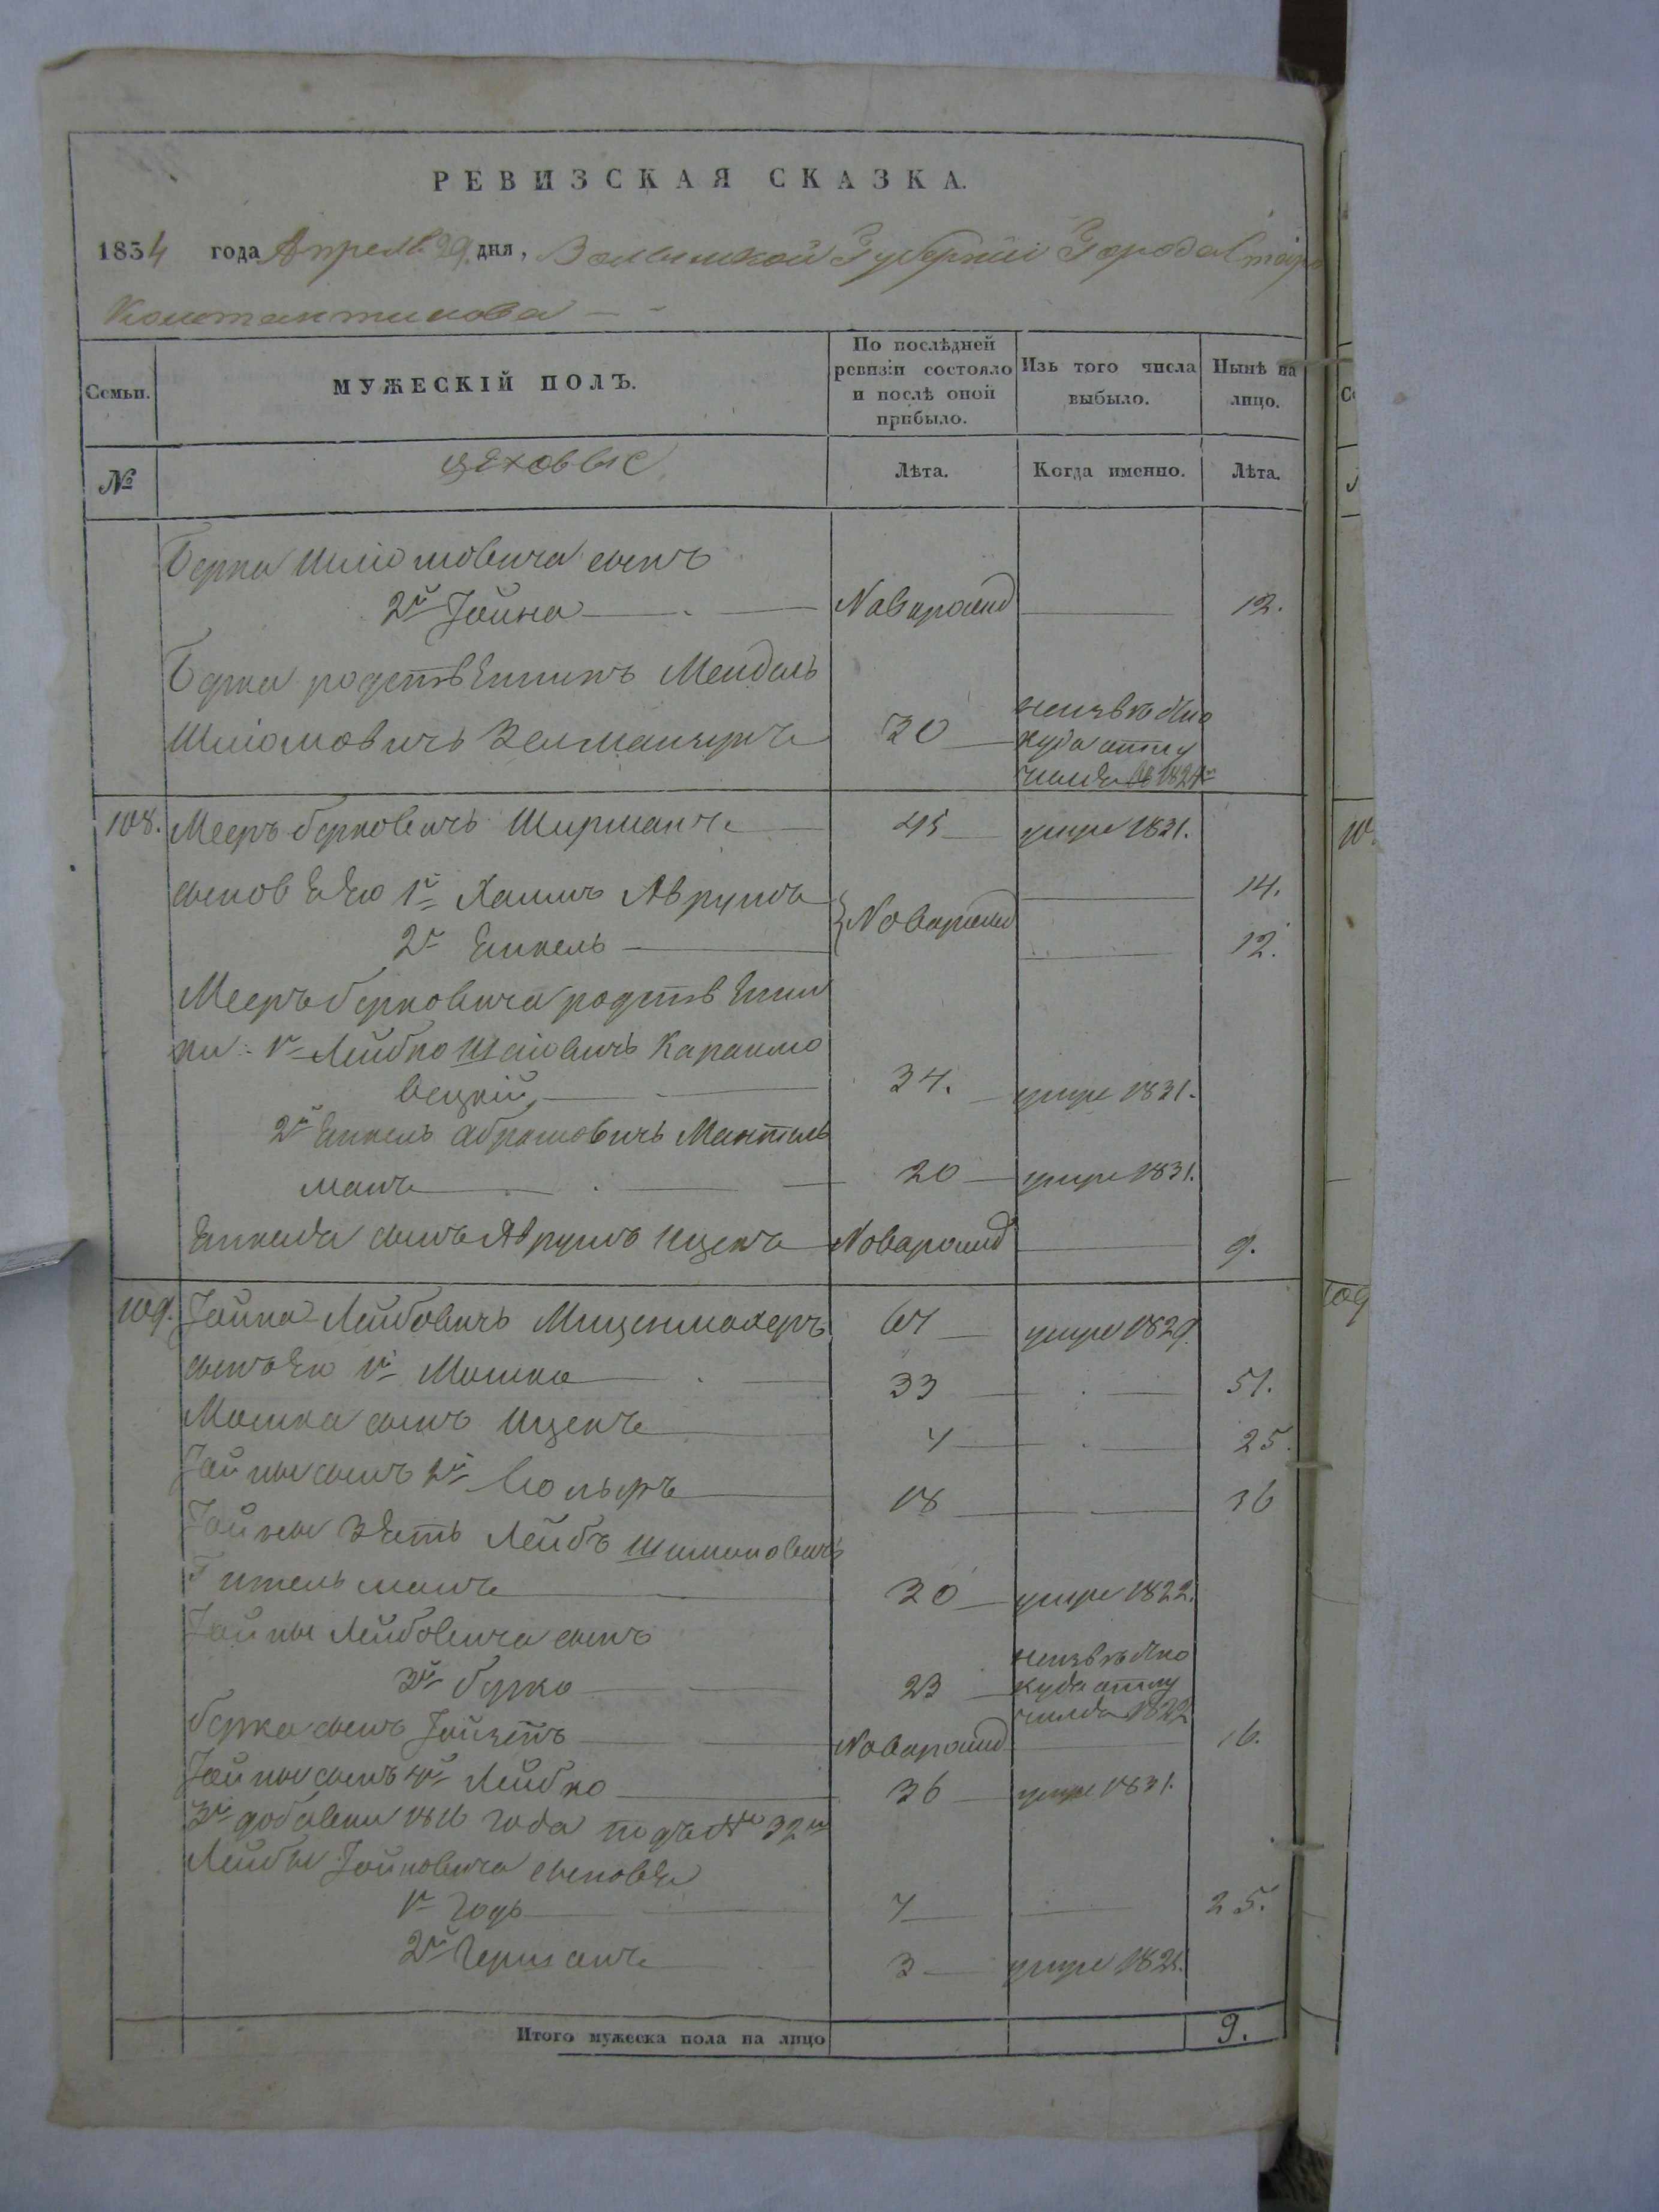 РЕВИЗСКАЯ СКАЗКА.
1834 года Апреля 29 дня, Волынской Губернiи Города Старо
Константинова
Семьи. МУЖЕСКIЙ ПОЛЪ. По послѣдней ревизiи состояло и послѣ оной прибыло. Изъ того числа выбыло. Ныне на лицо.
№ цеховые Лѣта. Когда именно. Лѣта.
Берка Шлiомовича сынъ
2й Iойна Новорожд 12.
Берка родственникъ Мендель
Шлiомовичъ 30 неизвѣстно
куда отлу
108. Мееръ Берковичъ Ширманъ 45 умре 1831.
сыновья Его 1й Хаимъ Аврумъ 14.
2й Янкель Новорожд 12.
Мееръ Берковича родственни
ки: 1й Лейбко Шаiовичъ
вецкiй 34. умре 1831.
2й Янкель Абрамовичъ Мантель
манъ 20 умре 1831.
Янкеля сынъ Аврумъ Ицекъ Новорожд 9.
109. Iойна Лейбовичъ Миценмахеръ умре 1829.
сынъ Его 1й Мошко 33 51.
Мошка сынъ Ицекъ 7 25.
Iойны сынъ 2й Вольфъ 18 36
Iойны зять Лейбъ Шимоновичъ
Гительманъ 30 умре 1822.
Iойны Лейбовича сынъ
3й Берко 23 неизвѣстно
куда отлу
чился 1822
Берка сынъ Новорожд 16.
Iойны сынъ 4й Лейбко 36 умре 1831.
добавки 1816 года подъ № 32м
Лейбы Iойновича сыновья
1й 7 25.
2й Гершъ 3 умре
Итого мужеска пола на лицо 9.